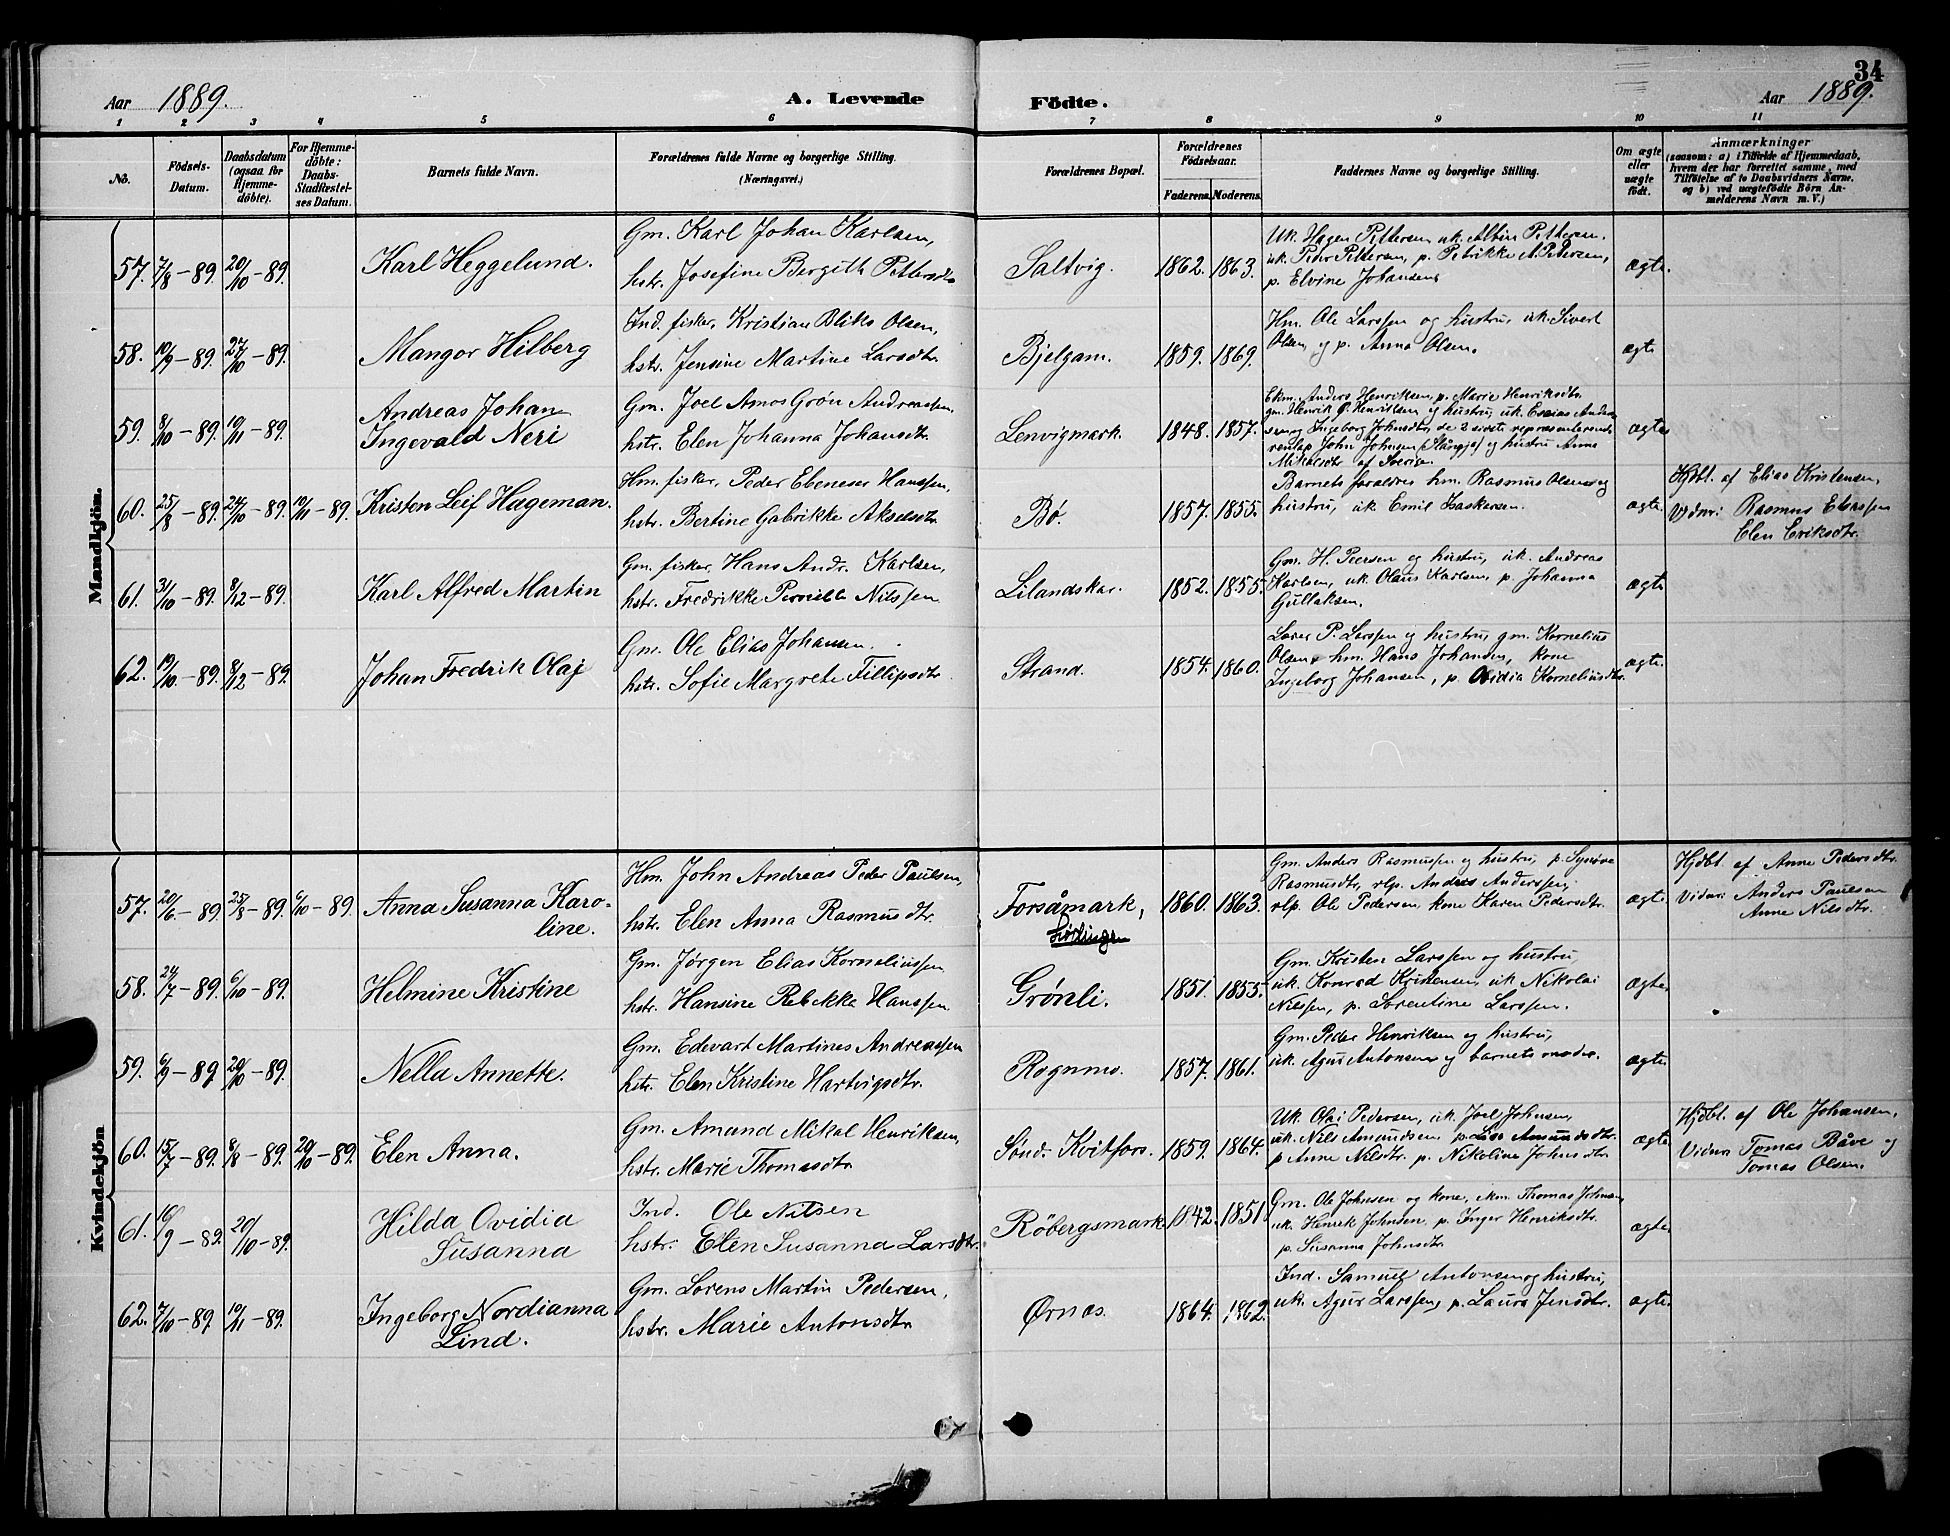 34
Aar 1889. A. Levende Födte. Aar 1889.
1 2 3 4 5 6 7 8 9 10 11
No.
Födsels-
Datum.
Daabsdatum
(ogsaa for
Hjemme-
döbte).
For Hjemme-
döbte:
Daabs-
Stadfæstel-
ses Datum.
Barnets fulde Navn.
Forældrenes fulde Navne og borgerlige Stilling.
(Næringsvei.)
Forældrenes Bopæl.
Forældrenes
Födselsaar.
Faderens. Moderens.
Faddernes Navne og borgerlige Stilling.
Om ægte
eller
uægte
födt.
Anmærkninger
(saasom: a) i Tilfælde af Hjemmedaab,
hvem der har forrettet samme, med
Tilföielse af to Daabsvidners Navne,
og b) ved uægtefödte Börn An-
melderens Navn m. V.)
Mandkjön.
57. 7/8-89. 20/10-89. Karl Heggelund.
Gm. Karl Johan Karlsen,
hstr. Josefine Bergith Pettersdtr.
Saltvig. 1862. 1863.
Uk. Hagen Pettersen, uk. Albin Pettersen.
uk. Peter Pettersen, p. Petrikke A. Petersen,
p. Elvine Johansen.
ægte.
58. 10/9-89. 27/10-89. Mangor Hilberg
Ind. fisker, Kristian Bliks Olsen,
hstr. Jensine Martine Larsdtr.
Bjelgam. 1859. 1869.
Hm. Ole Larssen og hustru, uk. Sivert
Olsen, og p. Anna Olsen.
ægte
59. 8/10-89. 10/11-89. Andreas Johan
Ingevald Neri
Gm. Joel Amos Grön Andreassen,
hstr. Elen Johanna Johansdtr.
Lenvigmark. 1848. 1857.
Ekm. Anders Henriksen, p. Marie Henriksdtr.
gm. Henrik O. Henriksen og hustru, uk. Esaias Ander
sen og Ingeborg Johnsdtr, de 2 sidste repræsenterende
renlap John Johnsen (Slångja) og hustru Anna
Mikalsdtr. af Sverige.
ægte
60. 25/8-89. 24/10-89. 10/11-89. Kristen Leif Hageman.
Hm. fisker, Peder Ebeneser Hanssen,
hstr. Bertine Gabrikke Akselsdtr.
Bø. 1857. 1855.
Barnets forældre hm. Rasmus Olsen og
hustru, uk. Emil Isaksen.
ægte.
Hjdbt. af Elias Kristensen,
Vidner: Rasmus Eliassen
Elen Eriksdtr.
61. 31/10-89. 8/12-89. Karl Alfred Martin
Gm. fisker, Hans Andr. Karlsen,
hstr. Fredrikke Pernille Nilssen
Lilandskar. 1852. 1855.
Gm. H. Peersen og hustru, uk. Andreas
Karlsen, uk. Olaus Karlsen, p. Johanna
Gullaksen.
ægte
62. 19/10-89. 8/12-89. Johan Fredrik Olaj
Gm. Ole Elias Johansen.
hstr. Sofie Margrete Fillipsdtr.
Strand. 1854. 1860.
Lærer P. Larssen og hustru, gm. Kornelius
Olsen, hm. Hans Johansen, kone
Ingeborg Johansen, p. Ovidia Korneliusdtr.
ægte.
Kvindekjön
57. 20/6-89. 25/8-89. 6/10-89. Anna Susanna Karo-
line.
Hm. John Andreas Peder Paulsen,
hstr. Elen Anna Rasmusdtr.
Forsåmark,
Lødingen
1860. 1863.
Gm. Anders Rasmussen og hustru, p. Synøve
Rasmusdtr. rlp. Andreas Anderssen,
rlp. Ole Pedersen, kone Karen Pedersdtr.
ægte.
Hjdbt. af Anne Pedersdtr.
Vidner Anders Paulsen
Anne Nilsdtr.
58. 24/7-89. 6/10-89. Helmine Kristine
Gm. Jørgen Elias Korneliussen
hstr. Hansine Rebekke Hanssen.
Grønli. 1851. 1855.
Gm. Kristen Larssen og hustru,
uk. Konrad Kristensen, uk. Nikolai
Nilssen, p. Sorentine Larssen.
ægte.
59. 6/9-89 20/10-89. Nella Annette.
Gm. Edevart Martines Andreassen
hstr. Elen Kristine Hartvigsdtr.
Rognmo. 1857. 1861.
Gm. Peder Henriksen og hustru,
uk. Agur Antonsen og barnets moder.
ægte.
60. 15/7-89. 8/8-89. 20/10-89. Elen Anna.
Gm. Amand Mikal Henriksen,
hstr. Marie Thomasdtr.
Sønd. Kvitfors. 1859. 1864.
Uk. Olai Pedersen, uk. Joel Johnsen,
uk. Nils Amundsen, p. Lise Amundsdtr.
p. Anne Nilsdtr. p. Nikoline Johnsdtr.
ægte.
Hjdbt. af Ole Johansen,
Vidner Tomas Båve og
Tomas Olsen.
61. 16/9-89. 20/10-89. Hilda Ovidia
Susanna
Ind. Ole Nilsen
hstr. Elen Susanna Larsdtr.
Røbergsmark 1842. 1851.
Gm. Ole Johnsen og kone, ekm. Thomas Johnsen,
uk. Henrik Johnsen, p. Inger Henriksdtr.
p. Susanna Johnsdtr.
ægte.
62. 7/10-89. 10/11-89. Ingeborg Nordianna
Lind.
Gm. Lorens Martin Pedersen,
hstr. Marie Antonsdtr.
Ørnæs. 1864. 1862.
Ind. Samuel Antonsen og hustru,
uk. Agur Larssen, p. Laura Jensdtr.
ægte.